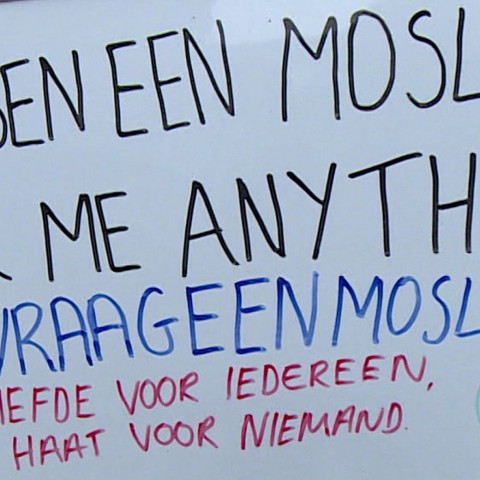 BEN EEN MOSL
K ME ANYTH
VRAAGEENMOSL
IEFDE VOOR IEDEREEN,
HAAT VOOR NIEMAND.